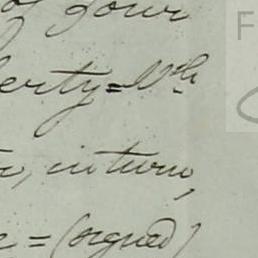 of your
erty = Wh
, in turn,
e = (signed)
F